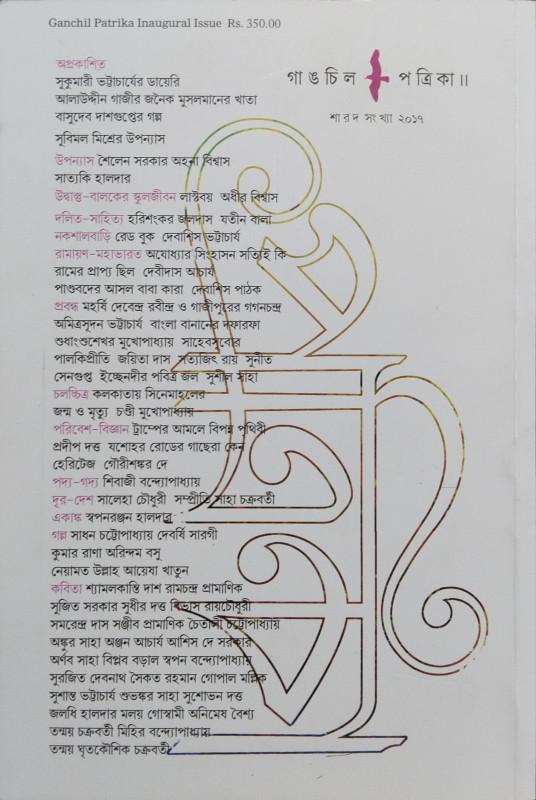 Ganchil Patrika Inaugural Issue Rs. 350.00
গাঙচিল পত্রিকা॥
শারদ সংখ্যা ২০১৭
অপ্রকাশিত
সুকুমারী ভট্টাচার্যের ডায়েরি
আলাউদ্দীন গাজীর জনৈক মুসলমানের খাতা
বাসুদেব দাশগুপ্তের গল্প
সুবিমল মিশ্রের উপন্যাস
উপন্যাস শৈলেন সরকার অহনা বিশ্বাস
সাত্যকি হালদার
উদ্বাস্তু-বালকের স্কুলজীবন লাস্টবয় অধীর বিশ্বাস
দলিত-সাহিত্য হরিশংকর জলদাস যতীন বালা
নকশালবাড়ি রেড বুক দেবাশিস ভট্টাচার্য
রামায়ণ-মহাভারত অযোধ্যার সিংহাসন সত্যিই কি
রামের প্রাপ্য ছিল দেবীদাস আচার্য
পাণ্ডবদের আসল বাবা কারা দেবাশিস পাঠক
প্রবন্ধ মহর্ষি দেবেন্দ্র রবীন্দ্র ও গাজীপুরের গগনচন্দ্র
অমিত্রসূদন ভট্টাচার্য বাংলা বানানের দফারফা
শুধাংশুশেখর মুখোপাধ্যায় সাহেবসুবোর
পালকিপ্রীতি জয়িতা দাস সত্যজিৎ রায় সুনীত
সেনগুপ্ত ইচ্ছেনদীর পবিত্র জল সুশীল সাহা
চলচ্চিত্র কলকাতায় সিনেমাহলের
জন্ম ও মৃত্যু চণ্ডী মুখোপাধ্যায়
পরিবেশ-বিজ্ঞান ট্রাম্পের আমলে বিপন্ন পৃথিবী
প্রদীপ দত্ত যশোহর রোডের গাছেরা কেন
হেরিটেজ গৌরীশঙ্কর দে
পদ্য-গদ্য শিবাজী বন্দ্যোপাধ্যায়
দূর-দেশ সালেহা চৌধুরী সম্প্রীতি সাহা চক্রবর্তী
একাঙ্ক স্বপনরঞ্জন হালদার
গল্প সাধন চট্টোপাধ্যায় দেবর্ষি সারগী
কুমার রাণা অরিন্দম বসু
নেয়ামত উল্লাহ আয়েষা খাতুন
কবিতা শ্যামলকান্তি দাশ রামচন্দ্র প্রামাণিক
সুজিত সরকার সুধীর দত্ত বিভাস রায়চৌধুরী
সমরেন্দ্র দাস সঞ্জীব প্রামাণিক চৈতালী চট্টোপাধ্যায়
অঙ্কুর সাহা অঞ্জন আচার্য আশিস দে সরকার
অর্ণব সাহা বিপ্লব বড়াল স্বপন বন্দ্যোপাধ্যায়
সুরজিত দেবনাথ সৈকত রহমান গোপাল মল্লিক
সুশান্ত ভট্টাচার্য শুভঙ্কর সাহা সুশোভন দত্ত
জলধি হালদার মলয় গোস্বামী অনিমেষ বৈশ্য
তন্ময় চক্রবর্তী মিহির বন্দ্যোপাধ্যায়
তন্ময় ঘৃতকৌশিক চক্রবর্তী